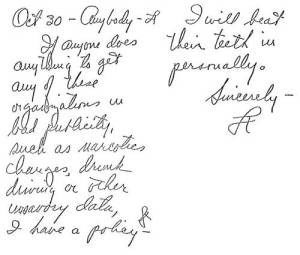 Oct 30 - Anybody - A
If anyone does
anything to get
any of these
organizations in
bad publicity,
such as narcotics
charges, drunk
driving or other
unsavory data,
I have a policy -
I will beat
their teeth in
personally.
Sincerely -